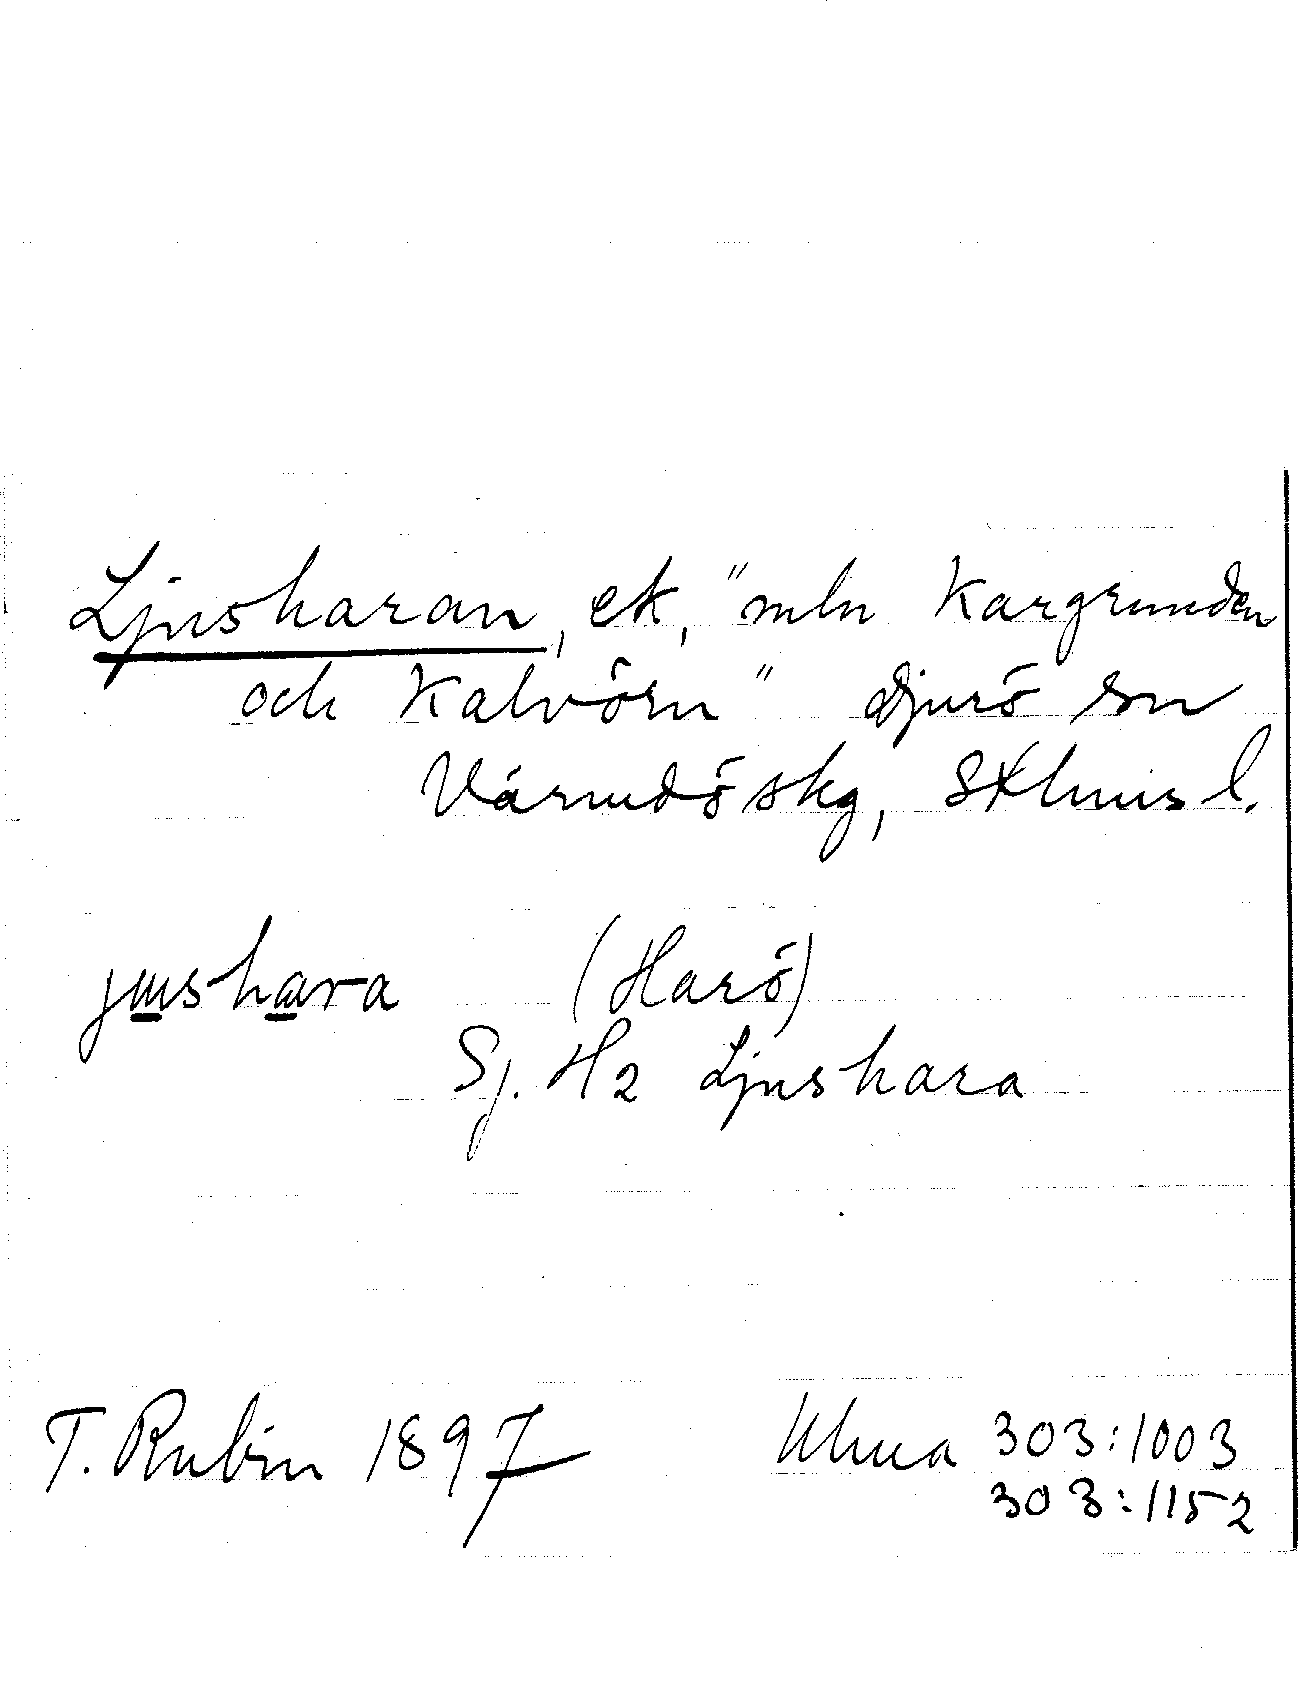 Ljusharan, ek, "mln Kargrunden
och Kalvörn" Djurö sn
Värmdö skg, Sthlms l.
jushara (Harö)
Sj. H2 Ljushara
T. Rubin 1897 Uhua 303:1003
303:1152